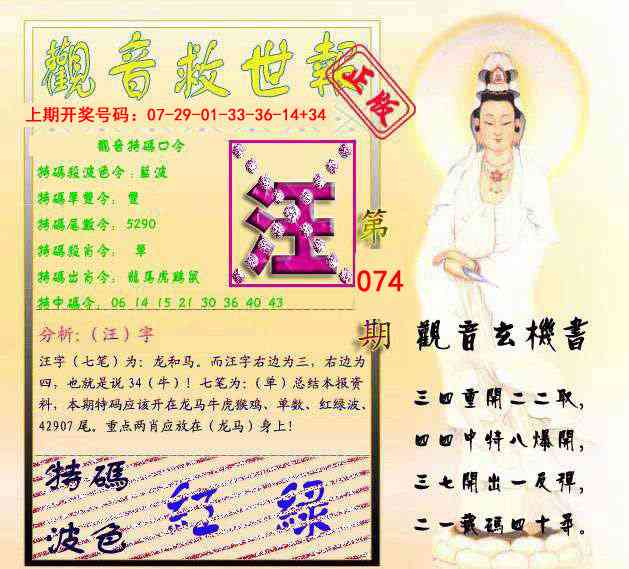 觀音救世報
正版
上期开奖号码：07-29-01-33-36-14+34
觀音特碼口令
特碼段波色令：藍波
特碼單雙令：雙
特碼尾數令：5290
特碼段肖令：單
特碼出肖令：龍馬虎鷄鼠
特中碼令：06 14 15 21 30 36 40 43
汪
第
074
期
分析：（汪）字
汪字（七笔）为：龙和马。而汪字右边为三，右边为
四，也就是说 34（牛）！七笔为：（单）总结本报资
料，本期特码应该开在龙马牛虎猴鸡、单数、红绿波、
42907 尾。重点两肖应放在（龙马）身上！
特碼
波色
红 緑
觀音玄機書
三四重開二二取，
四四中特八爆開，
三七開出一反彈，
二一載碼四十尋。